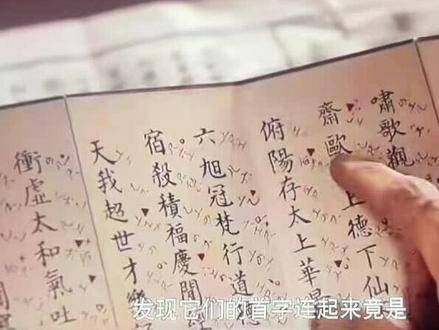 嘯歌觀
齋歐上德下仙
俯陽存太上華
六旭冠梵行道
宿殺積福慶閒
天我超世才樂
衝虛太和氣吐
发现它们的首字连起来竟是